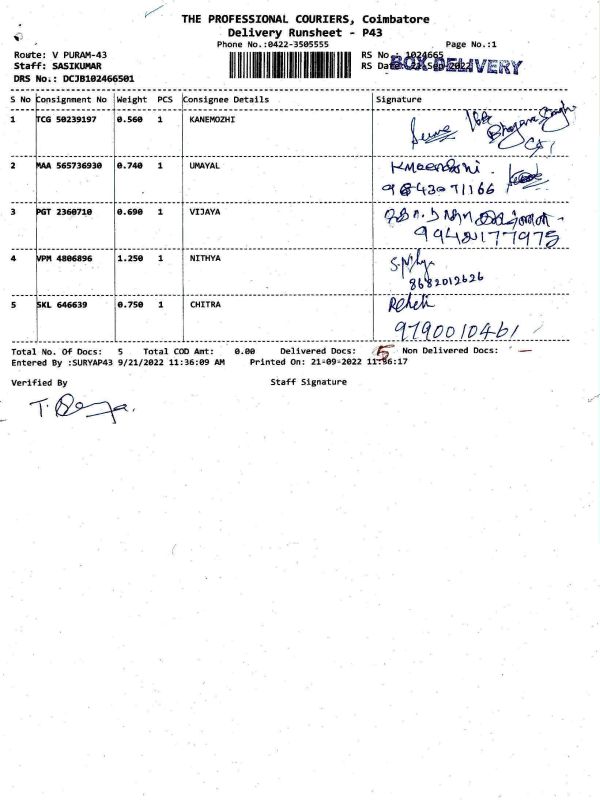 THE PROFESSIONAL COURIERS, Coimbatore
Delivery Runsheet - P43
Phone No.:0422-3505555
Page No.:1
Route: V PURAM-43
RS No.: 1024665
Staff: SASIKUMAR
RS Date: 21-Sep-2022
BOX DELIVERY
DRS No.: DCJB102466501
S No Consignment No Weight PCS Consignee Details Signature
1 TCG 50239197 0.560 1 KANEMOZHI
2 MAA 565736930 0.740 1 UMAYAL
3 PGT 2360710 0.690 1 VIJAYA
4 VPM 4806896 1.250 1 NITHYA
8682012626
5 SKL 646639 0.750 1 CHITRA
9790010461
Total No. Of Docs: 5 Total COD Amt: 0.00 Delivered Docs: 5 Non Delivered Docs: —
Entered By :SURYAP43 9/21/2022 11:36:09 AM Printed On: 21-09-2022 11:36:17
Verified By Staff Signature